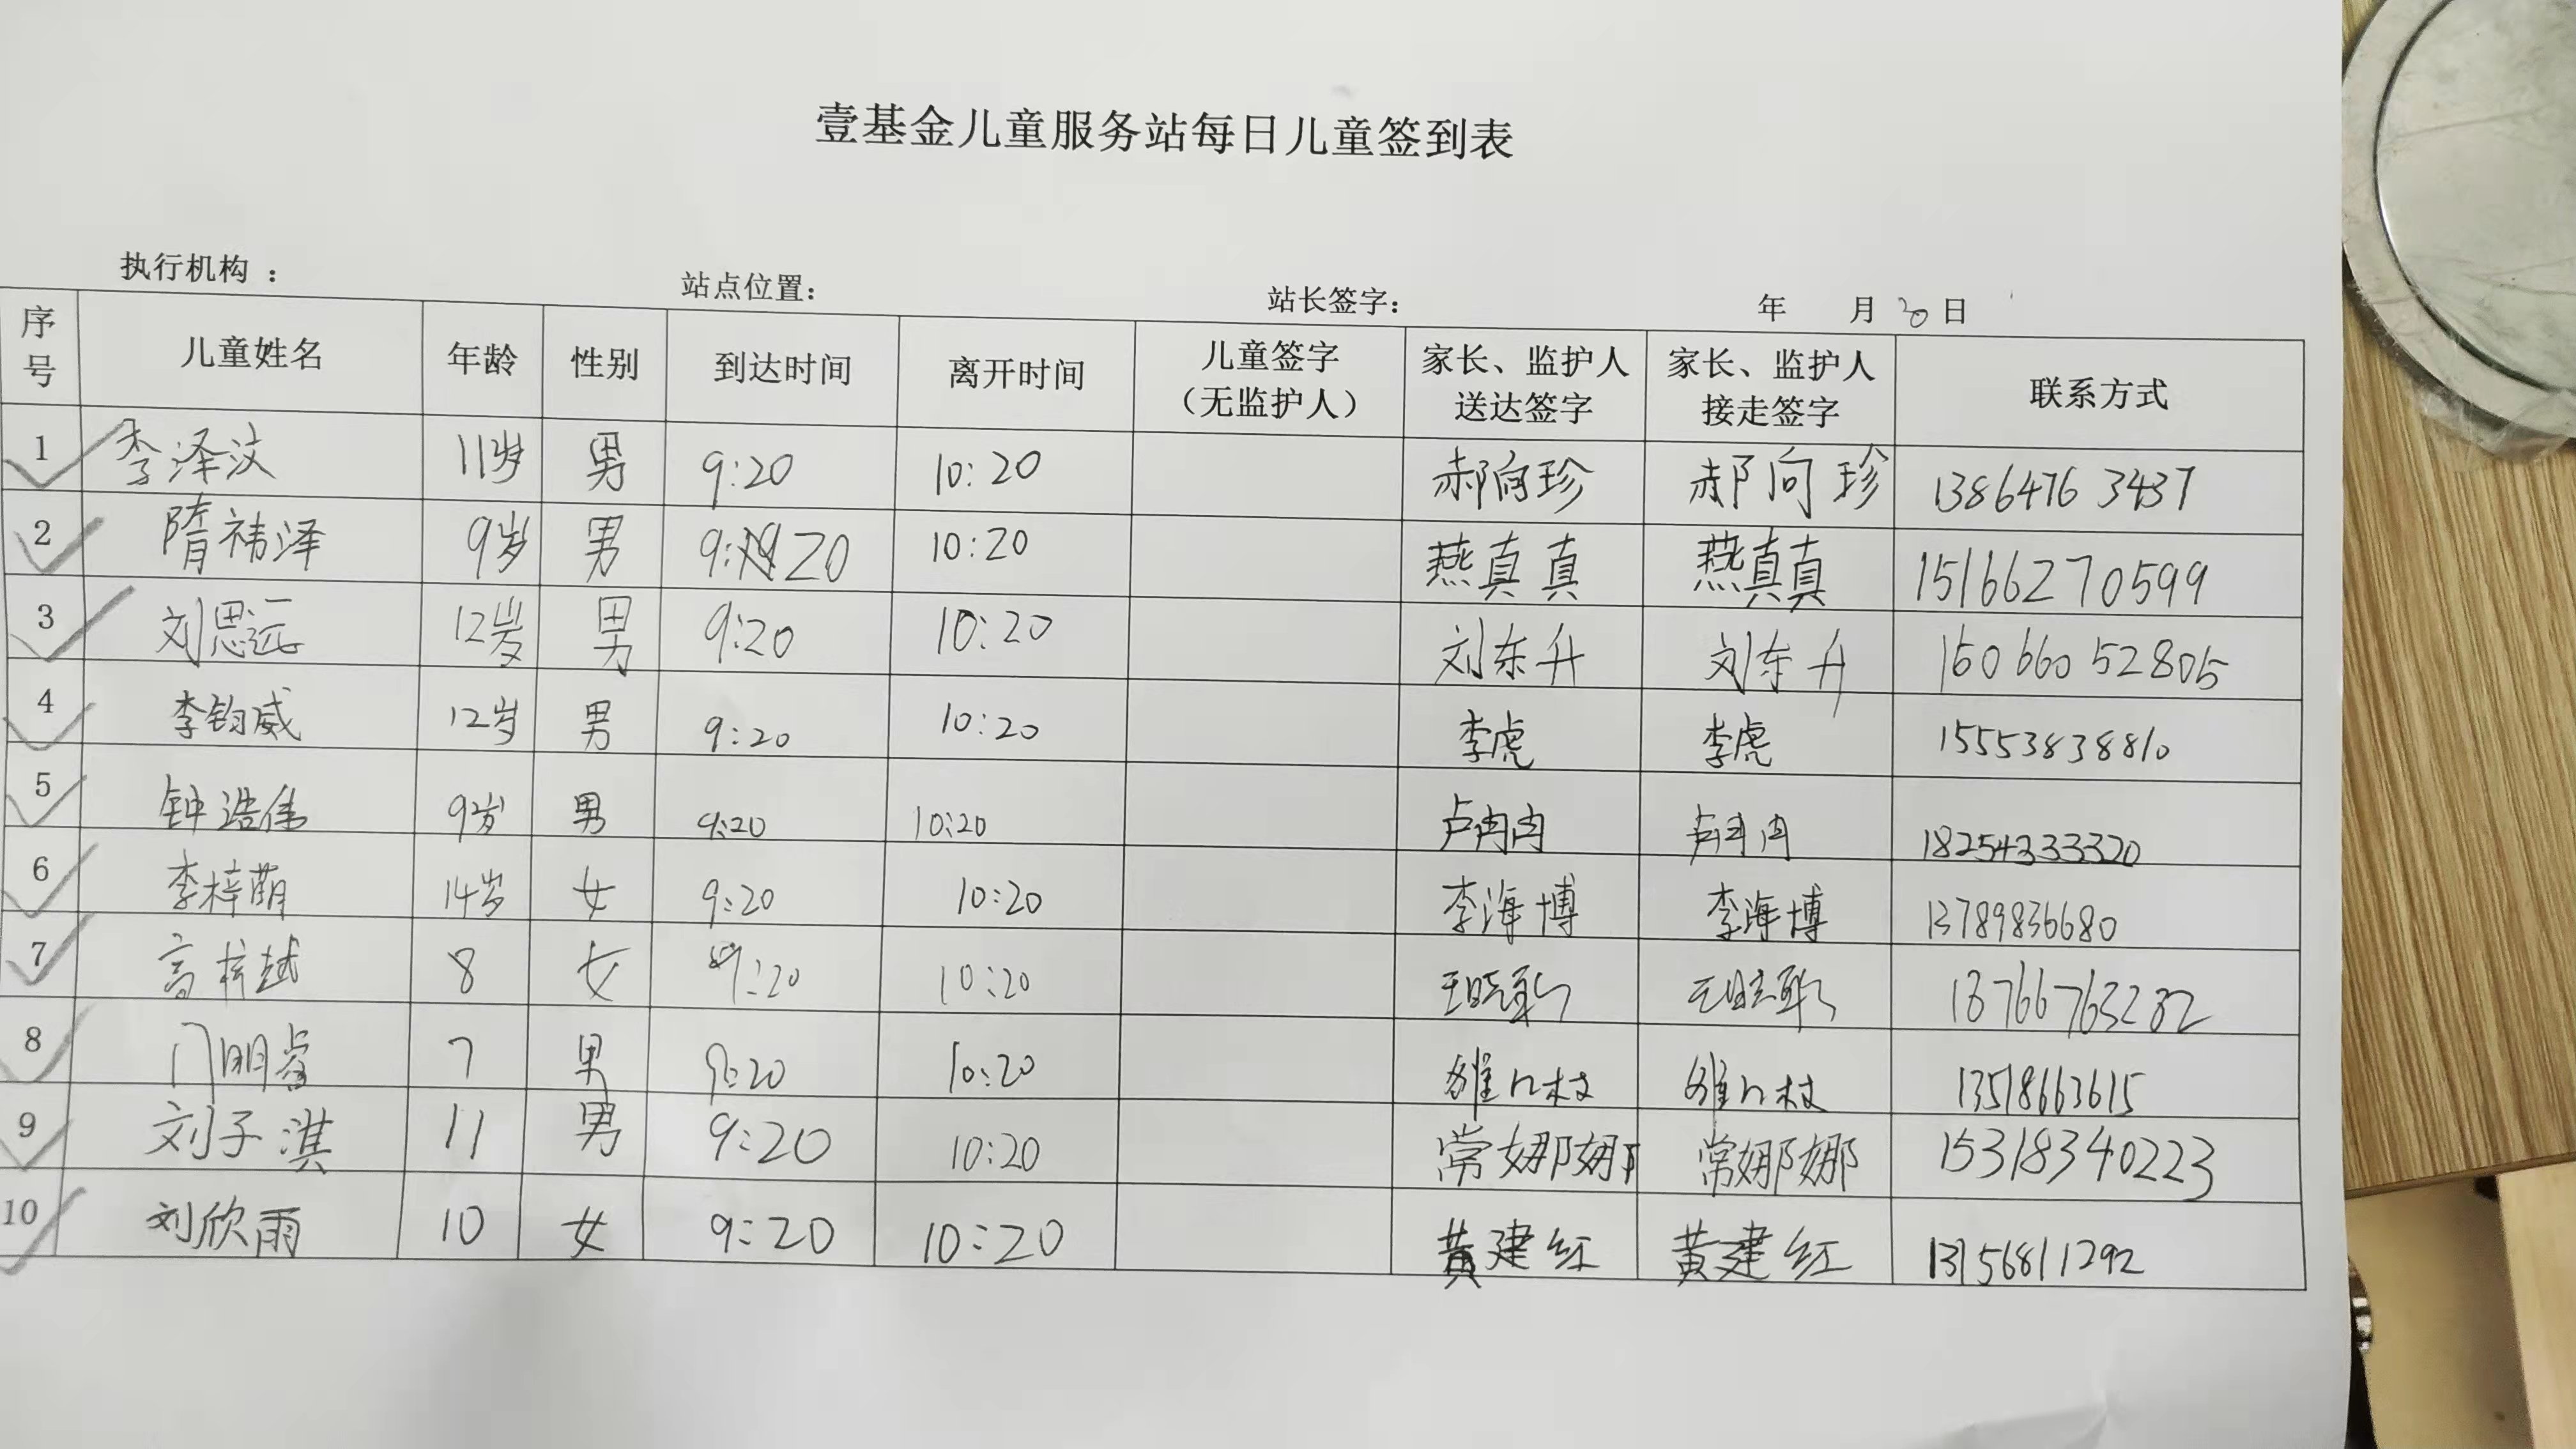 壹基金儿童服务站每日儿童签到表
执行机构 ： 站点位置： 站长签字： 年 月 30 日
序号 儿童姓名 年龄 性别 到达时间 离开时间 儿童签字（无监护人） 家长、监护人送达签字 家长、监护人接走签字 联系方式
1 李泽汶 11岁 男 9:20 10:20 郝向珍 郝向珍 13864763437
2 隋祎泽 9岁 男 9:20 10:20 燕真真 燕真真 15166270599
3 刘思远 12岁 男 9:20 10:20 刘东升 刘东升
4 李钧威 12岁 男 9:20 10:20 李虎 李虎 15553838810
5 钟浩伟 9岁 男 9:20 10:20 卢冉冉 卢冉冉 18254333320
6 李梓萌 14岁 女 9:20 10:20 李海博 李海博 13789836680
7 高梓 8 女 9:20 10:20
8 门明睿 7 男 9:20 10:20 13518663615
9 刘子淇 11 男 9:20 10:20 常娜娜 常娜娜 15318340223
10 刘欣雨 10 女 9:20 10:20 黄建红 黄建红 13156811292